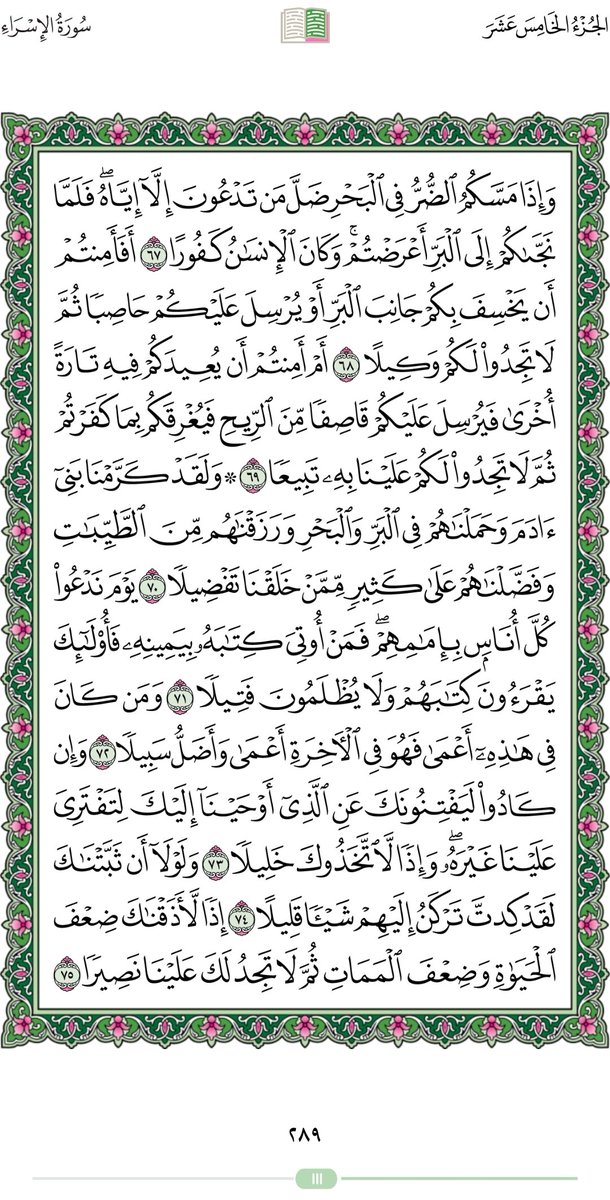 الجُزْءُ الخَامِسَ عَشَرَ
سُورَةُ الإِسْرَاءِ
وَإِذَا مَسَّكُمُ ٱلضُّرُّ فِي ٱلۡبَحۡرِ ضَلَّ مَن تَدۡعُونَ إِلَّآ إِيَّاهُۖ فَلَمَّا
نَجَّىٰكُمۡ إِلَى ٱلۡبَرِّ أَعۡرَضۡتُمۡۚ وَكَانَ ٱلۡإِنسَٰنُ كَفُورًا ٦٧ أَفَأَمِنتُمۡ
أَن يَخۡسِفَ بِكُمۡ جَانِبَ ٱلۡبَرِّ أَوۡ يُرۡسِلَ عَلَيۡكُمۡ حَاصِبٗا ثُمَّ
لَا تَجِدُواْ لَكُمۡ وَكِيلًا ٦٨ أَمۡ أَمِنتُمۡ أَن يُعِيدَكُمۡ فِيهِ تَارَةً
أُخۡرَىٰ فَيُرۡسِلَ عَلَيۡكُمۡ قَاصِفٗا مِّنَ ٱلرِّيحِ فَيُغۡرِقَكُم بِمَا كَفَرۡتُمۡ
ثُمَّ لَا تَجِدُواْ لَكُمۡ عَلَيۡنَا بِهِۦ تَبِيعٗا ٦٩ ۞ وَلَقَدۡ كَرَّمۡنَا بَنِيٓ
ءَادَمَ وَحَمَلۡنَٰهُمۡ فِي ٱلۡبَرِّ وَٱلۡبَحۡرِ وَرَزَقۡنَٰهُم مِّنَ ٱلطَّيِّبَٰتِ
وَفَضَّلۡنَٰهُمۡ عَلَىٰ كَثِيرٖ مِّمَّنۡ خَلَقۡنَا تَفۡضِيلٗا ٧٠ يَوۡمَ نَدۡعُواْ
كُلَّ أُنَاسِۭ بِإِمَٰمِهِمۡۖ فَمَنۡ أُوتِيَ كِتَٰبَهُۥ بِيَمِينِهِۦ فَأُوْلَٰٓئِكَ
يَقۡرَءُونَ كِتَٰبَهُمۡ وَلَا يُظۡلَمُونَ فَتِيلٗا ٧١ وَمَن كَانَ
فِي هَٰذِهِۦٓ أَعۡمَىٰ فَهُوَ فِي ٱلۡأٓخِرَةِ أَعۡمَىٰ وَأَضَلُّ سَبِيلٗا ٧٢ وَإِن
كَادُواْ لَيَفۡتِنُونَكَ عَنِ ٱلَّذِيٓ أَوۡحَيۡنَآ إِلَيۡكَ لِتَفۡتَرِيَ
عَلَيۡنَا غَيۡرَهُۥۖ وَإِذٗا لَّٱتَّخَذُوكَ خَلِيلٗا ٧٣ وَلَوۡلَآ أَن ثَبَّتۡنَٰكَ
لَقَدۡ كِدتَّ تَرۡكَنُ إِلَيۡهِمۡ شَيۡـٔٗا قَلِيلًا ٧٤ إِذٗا لَّأَذَقۡنَٰكَ ضِعۡفَ
ٱلۡحَيَوٰةِ وَضِعۡفَ ٱلۡمَمَاتِ ثُمَّ لَا تَجِدُ لَكَ عَلَيۡنَا نَصِيرٗا ٧٥
٢٨٩